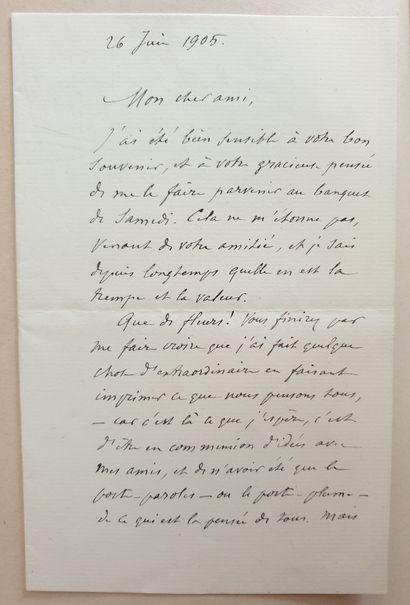 26 Juin 1905.
Mon cher ami,
J'ai été bien sensible à votre bon
souvenir, et à votre gracieuse pensée
de me le faire parvenir au banquet
de Samedi. Cela ne m'étonne pas,
venant de votre amitié, et je sais
depuis longtemps quelle en est la
trempe et la valeur.
Que de fleurs! Vous finirez par
me faire croire que j'ai fait quelque
chose d'extraordinaire en faisant
imprimer ce que nous pensons tous,
– car c'est là ce que j'espère, c'est
d'être en communion d'idées avec
mes amis, et de n'avoir été que le
porte-paroles – ou le porte-plume –
de ce qui est la pensée de tous. Mais